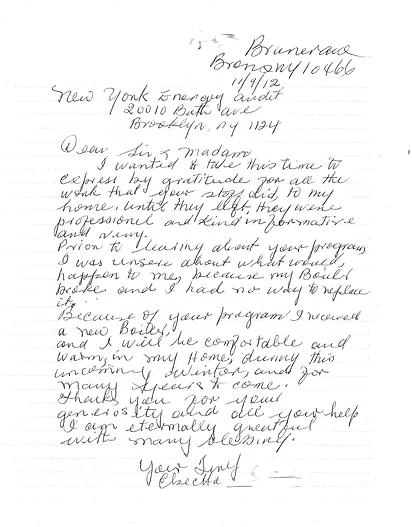 Bruner ave
Bronx NY 10466
11/9/12
New York Energy audit
20010 Bath ave
Brooklyn, ny 1124
Dear Sir & Madam
I wanted to take this time to
express by gratitude for all the
work that your staff did, to my
home. until they left, they were
professional and kind informative
and
Prior to hearing about your program
I was unsure about what would,
happen to me, because my Boiler
broke and I had no way to replace
it.
Because of your program I received
a new Boiler,
and I will be comfortable and
warm, in my Home, during this
uncoming winter, and for
many years to come.
thank you for your
generosity and all your help
I am eternally grateful
with many blessing.
Your